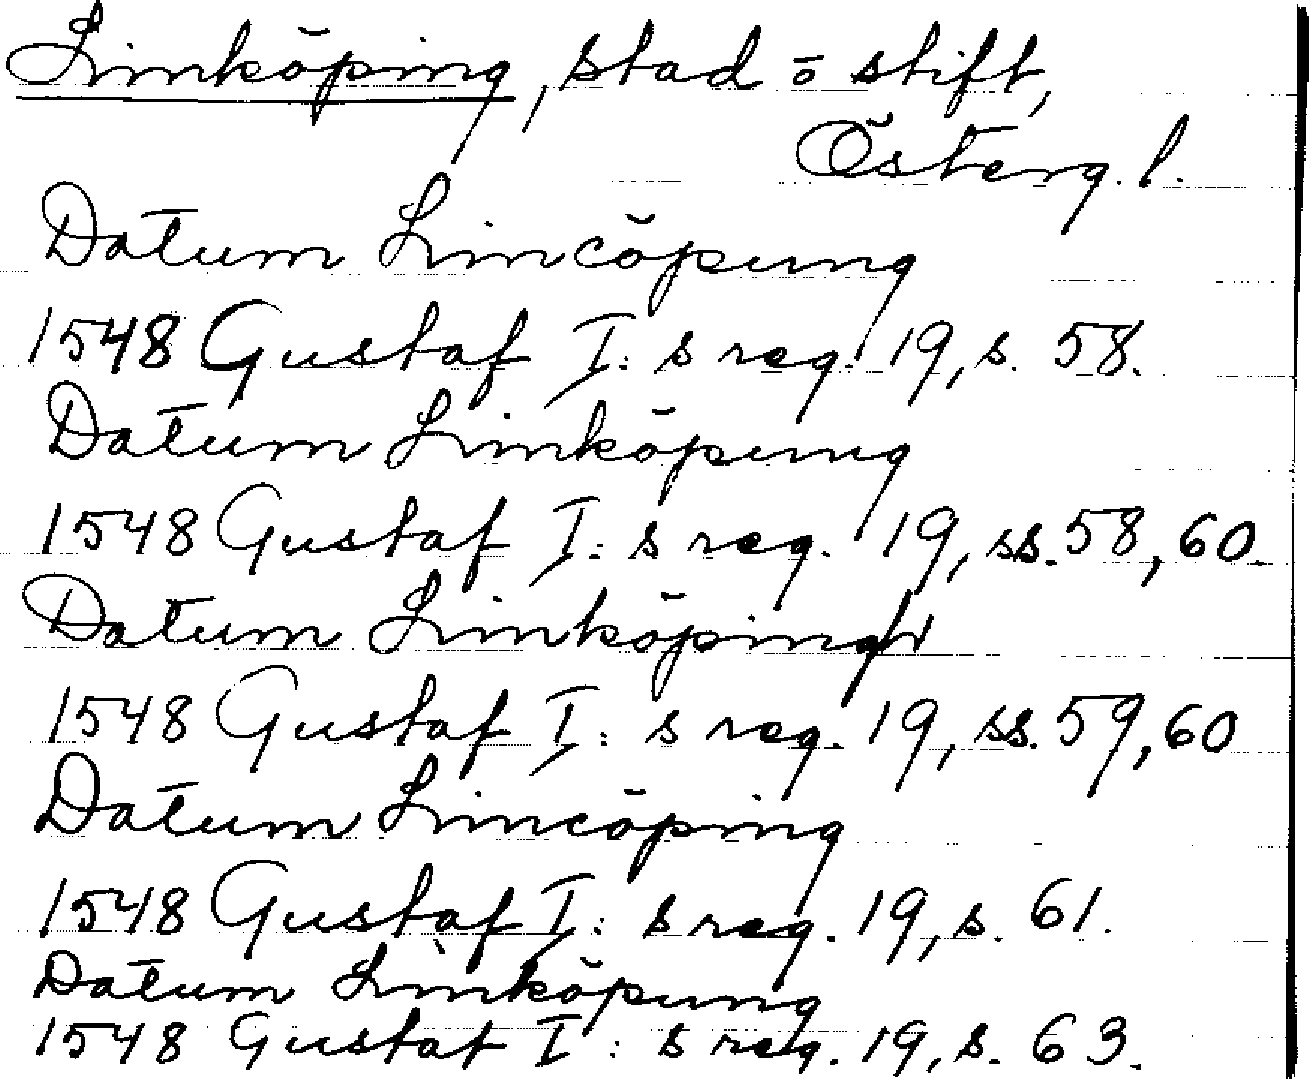 Linköping, stad o stift,
Österg. l.
Datum Lincöpung
1548 Gustaf I:s reg. 19, s. 58.
Datum Linköpung
1548 Gustaf I:s reg. 19, ss. 58, 60.
Datum Linköping
1548 Gustaf I:s reg. 19, ss. 59, 60
Datum Lincöping
1548 Gustaf I:s reg. 19, s. 61.
Datum Linköpung
1548 Gustaf I:s reg. 19, s. 63.